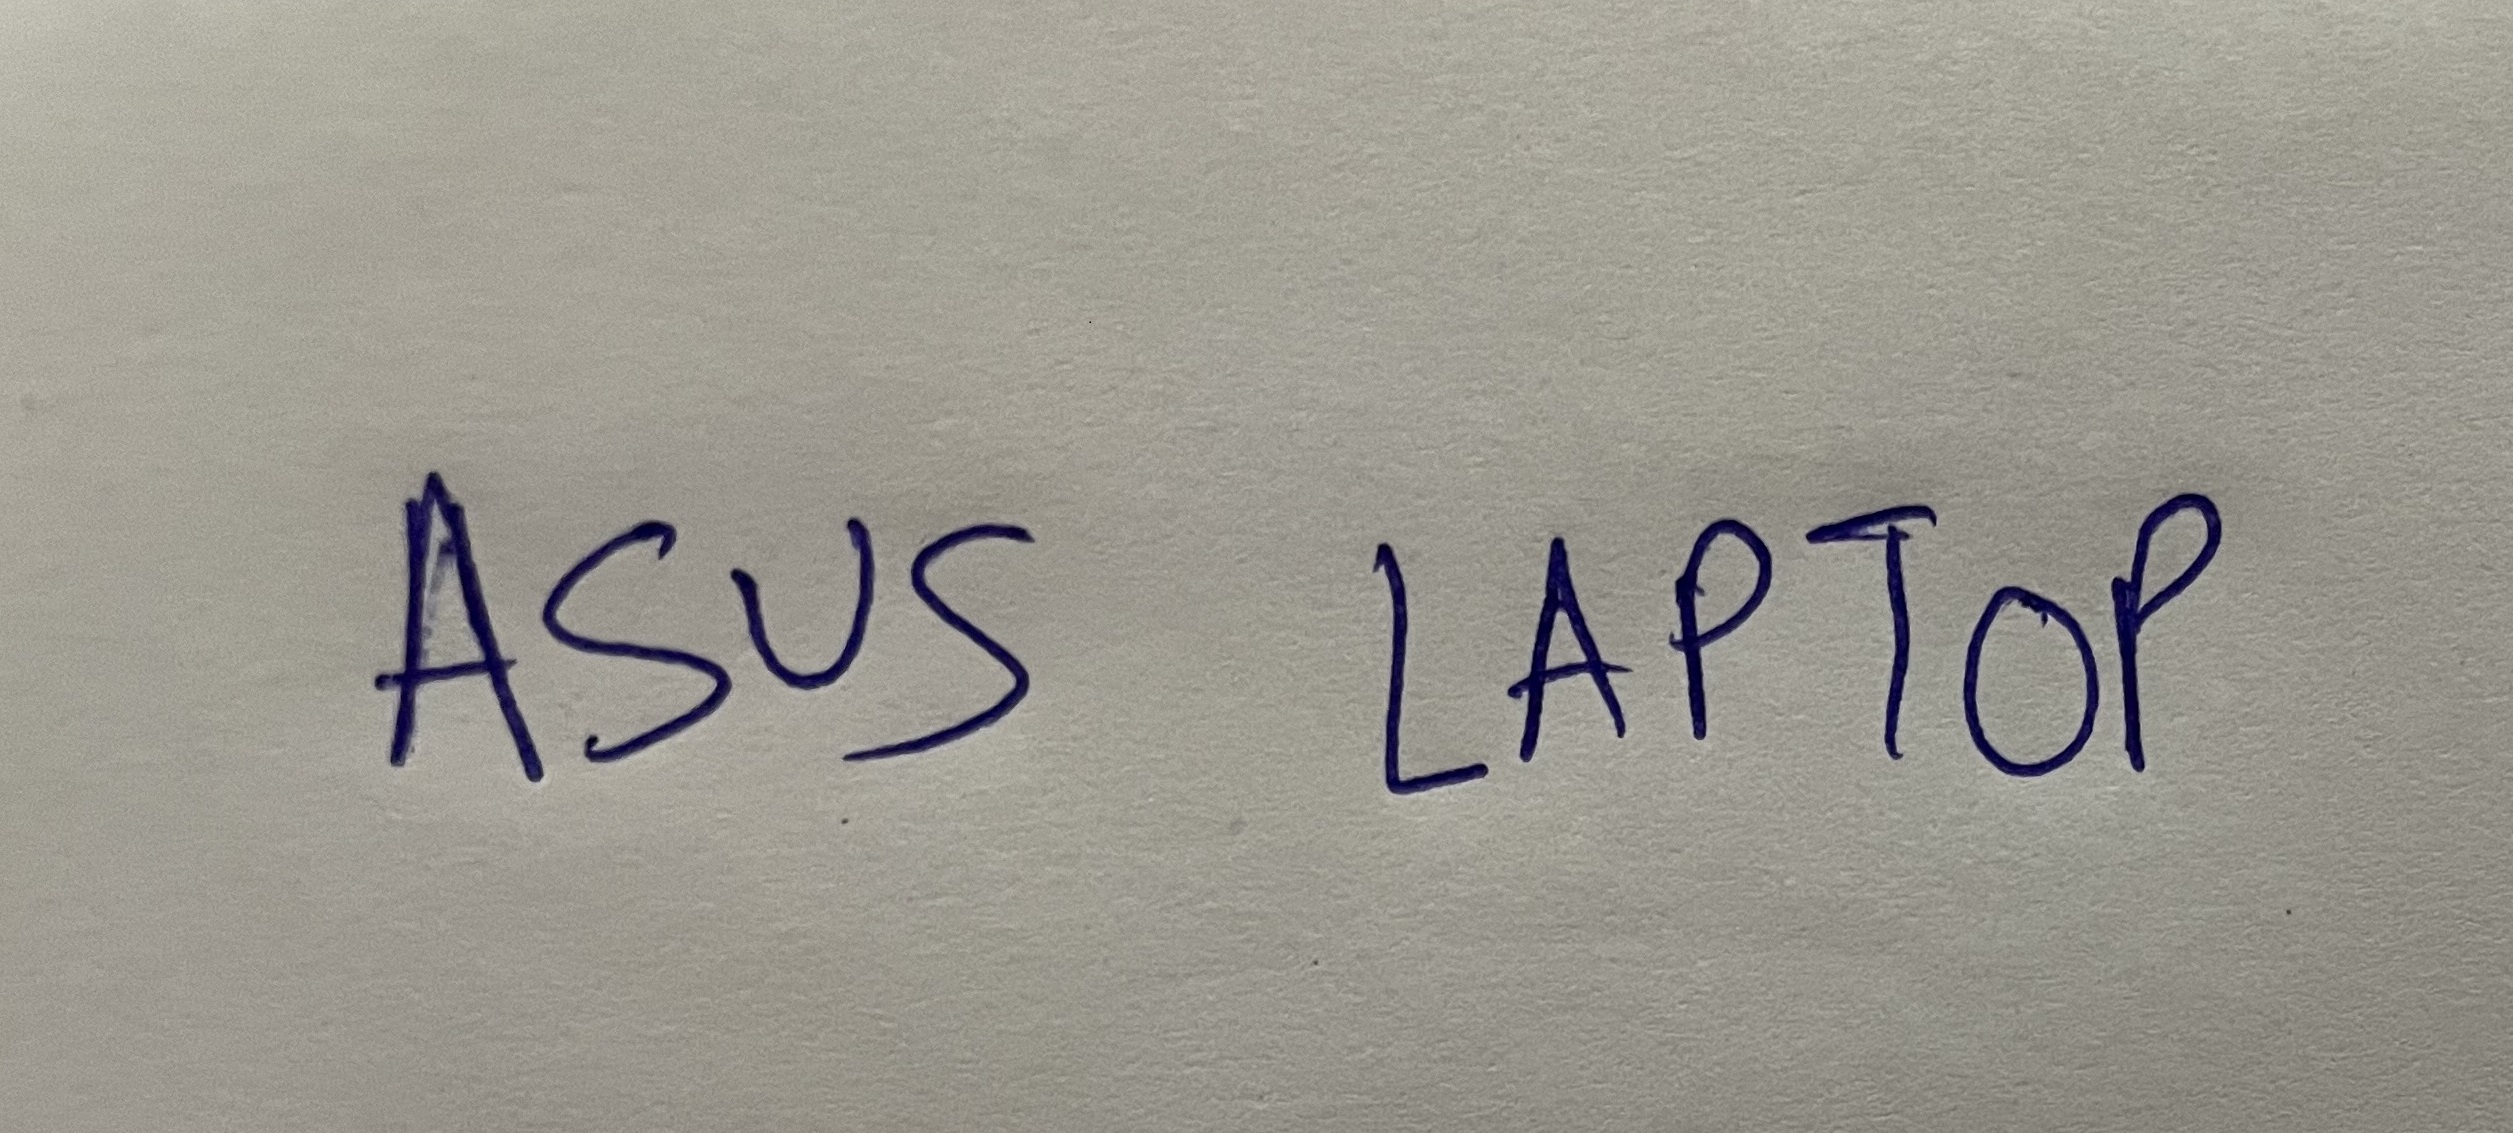 ASUS LAPTOP